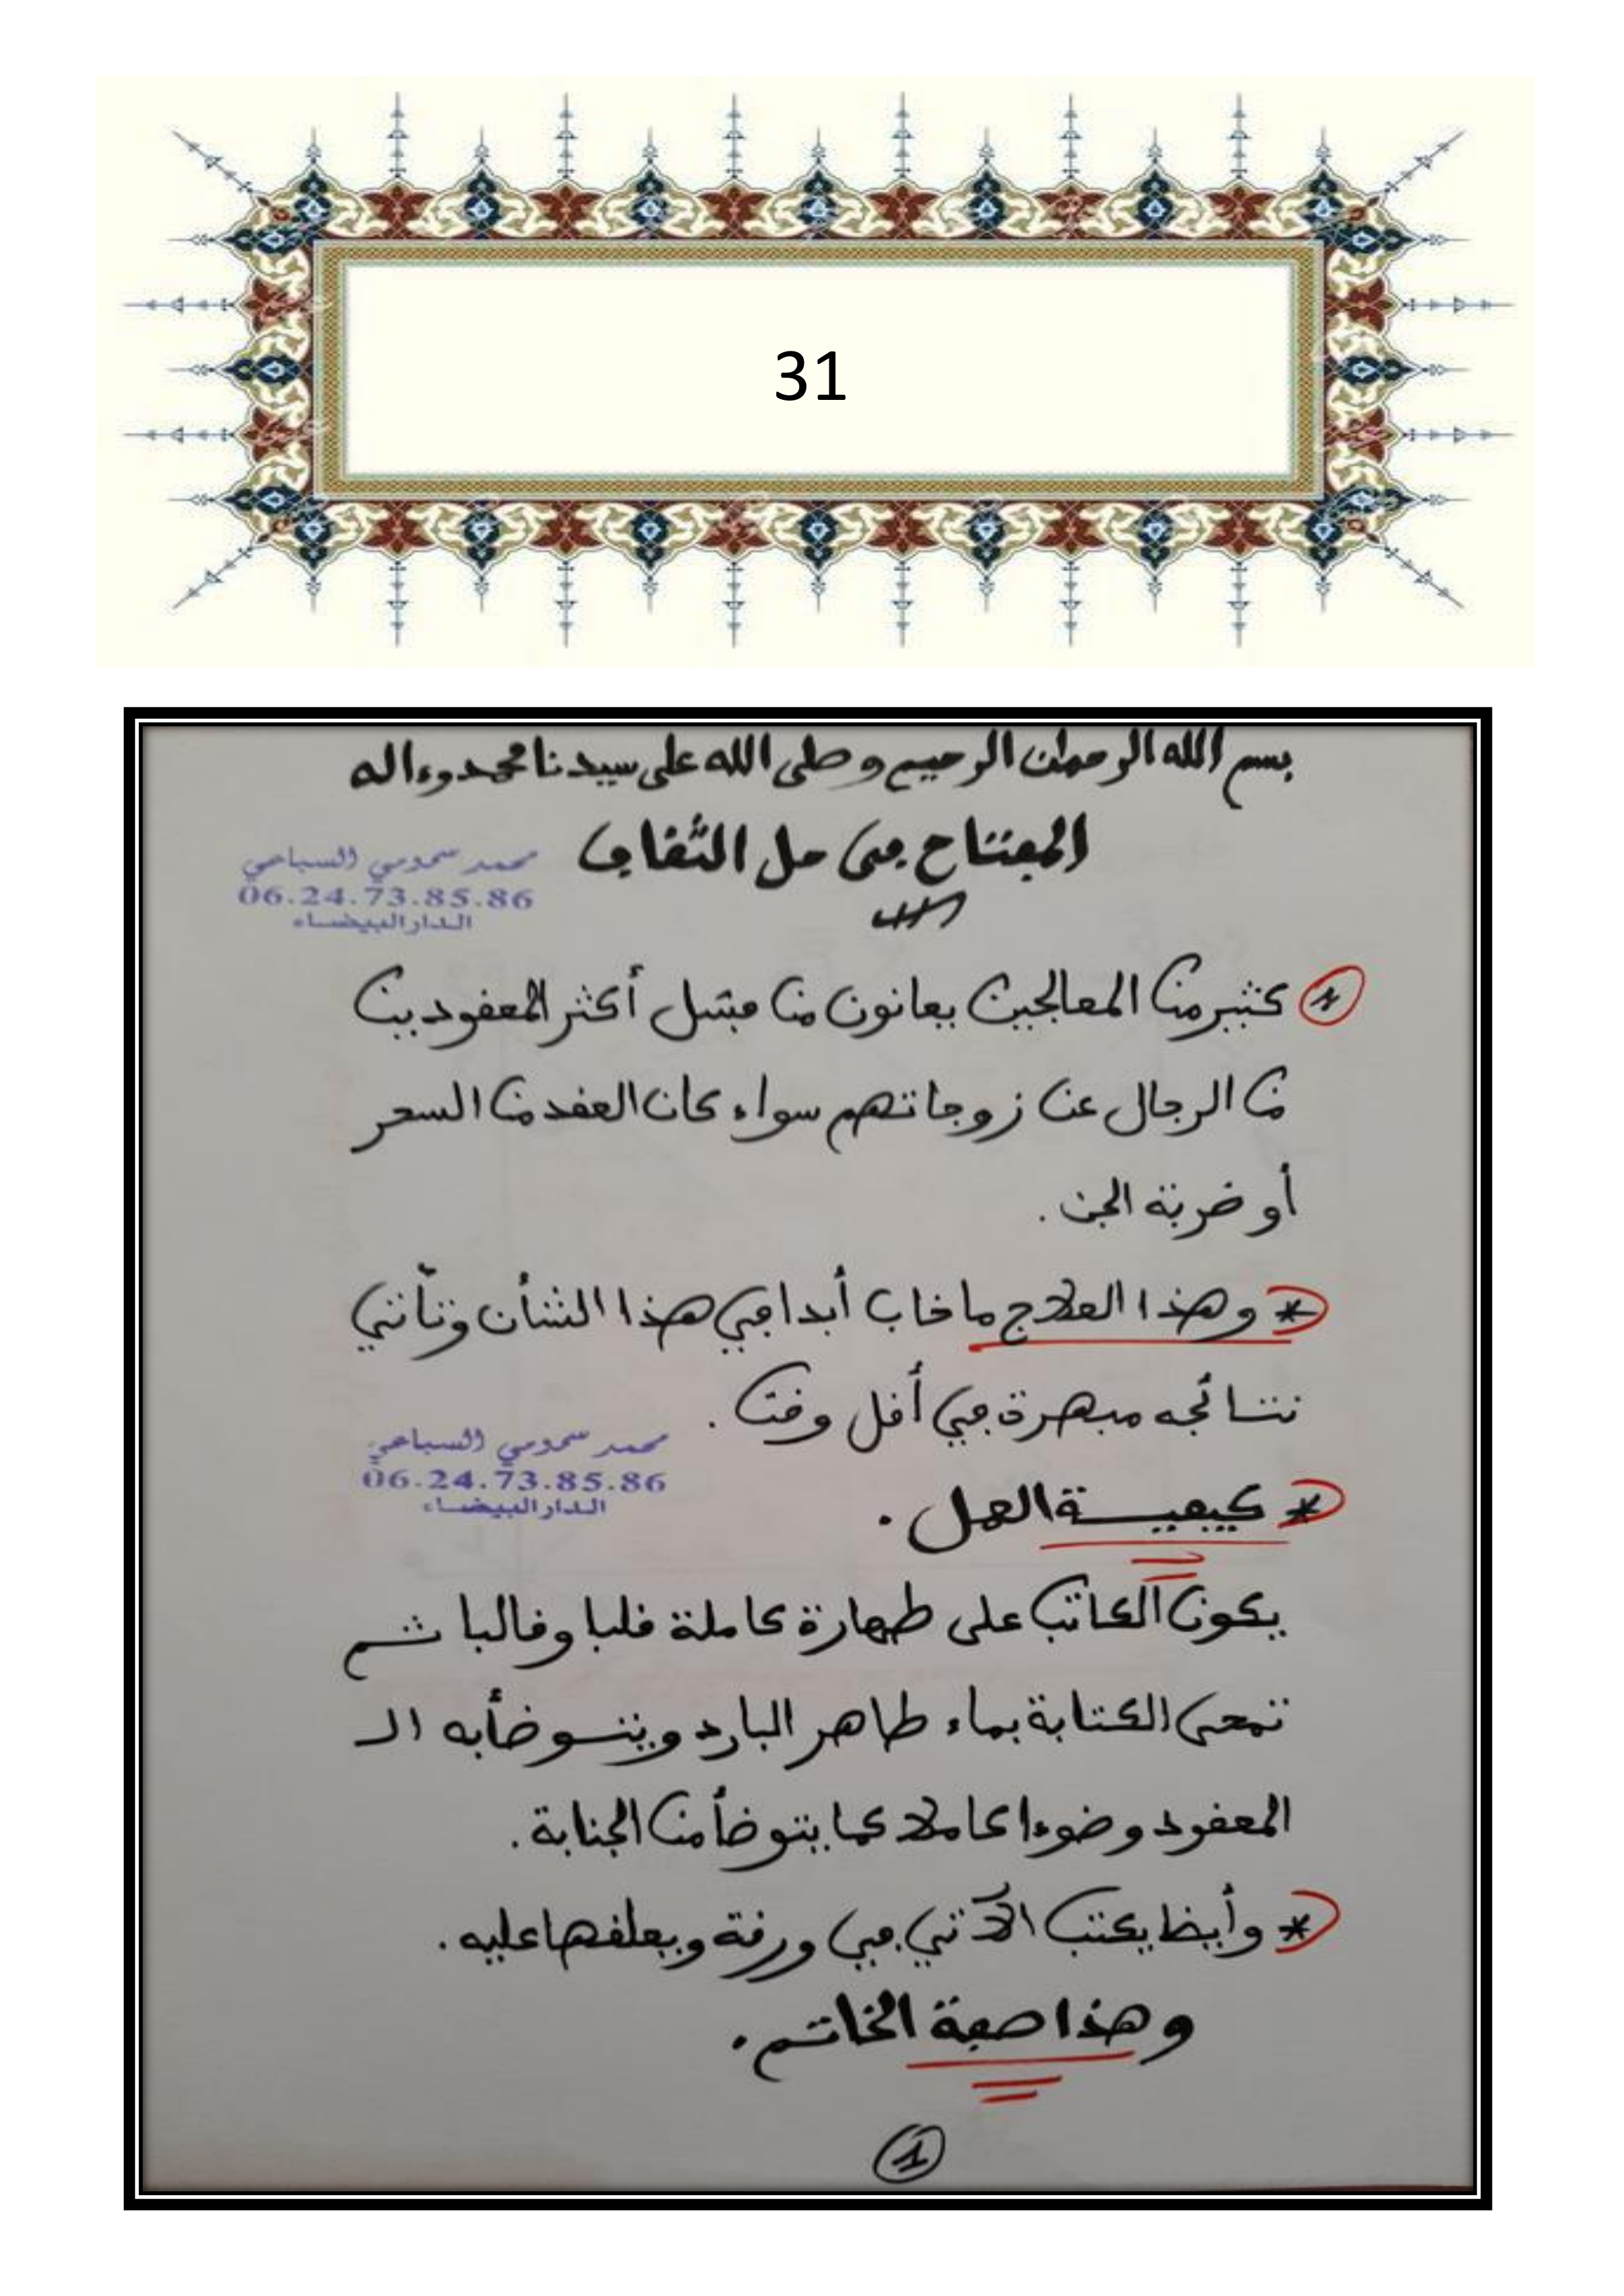 31
بسم الله الرحمان الرحيم وصلى الله على سيدنا محمد وءاله
المفتاح في حل الثقاف
محمد سمومي السباعي
06.24.73.85.86
الدار البيضاء
كثير من المعالجين يعانون من فشل أكثر المعقودين
من الرجال عن زوجاتهم سواء كان العقد من السحر
أو ضربة الجن .
* وهذا العلاج ما خاب أبدا في هذا الشأن وتأتي
نتائجه مبهرة في أقل وقت .
محمد سمومي السباعي
06.24.73.85.86
الدار البيضاء
* كيفيـــة العمل .
يكون الكاتب على طهارة كاملة قلبا وقالبا ثم
تمحى الكتابة بماء طاهر البارد ويتوضأ به الـ
المعقود وضوءا كاملا كما يتوضأ من الجنابة .
* وأيظا يكتب الآتي في ورقة ويعلقها عليه .
وهذا صفة الخاتم .
1